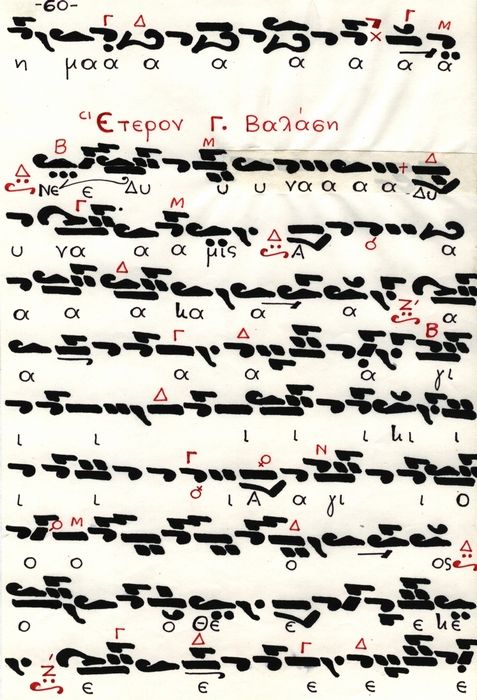 -60-
Γ Δ Γ Μ
η μα α α α α α α α
ϲι Ετερον Γ. Βαλάση
Β Μ Δ
Δ Νε ε Δυ υ υ να α α α Δυ
Γ Μ
υ να α α μις Δ Α α
Δ
α α α κα α α Ζ' α
Γ Δ Β
α α α α γι
Δ
ι ι ι ι ι κι ι
Γ Ν
ι ι ι Α α γι ι ο
Μ Δ
ο ο ο ος Δ
ο ο Θε ε ε κε
Γ Δ Γ Δ
Ζ' ε ε ε ε ε